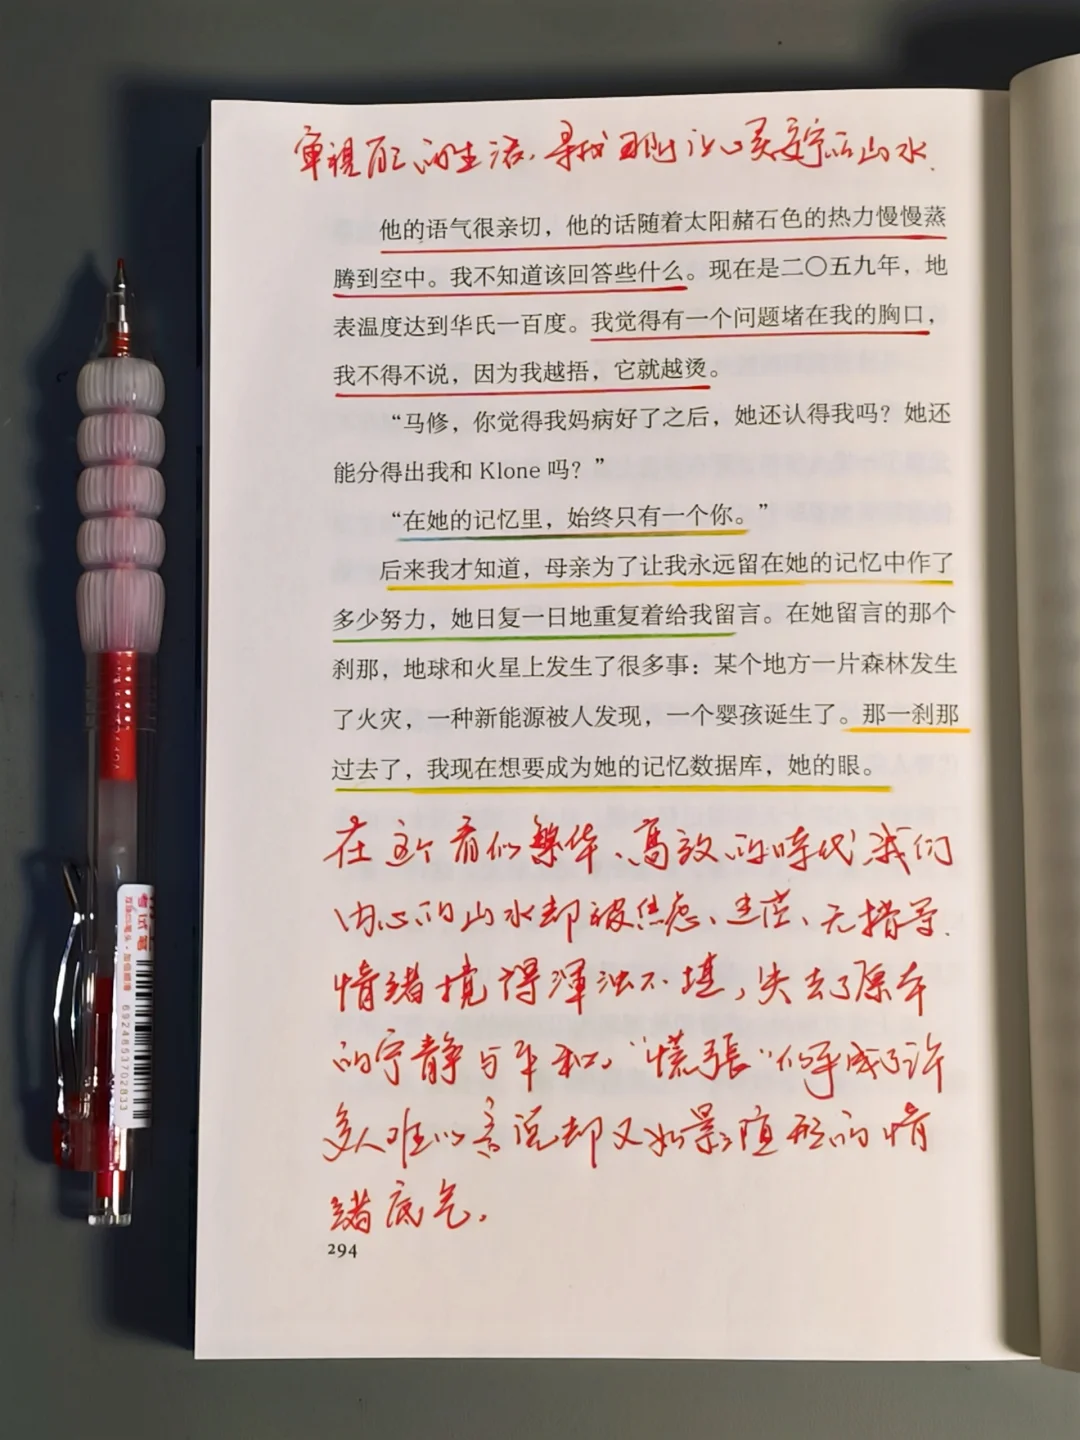 审视自己的生活，寻找那片让心灵安宁的山水.
他的语气很亲切，他的话随着太阳赭石色的热力慢慢蒸
腾到空中。我不知道该回答些什么。现在是二〇五九年，地
表温度达到华氏一百度。我觉得有一个问题堵在我的胸口，
我不得不说，因为我越捂，它就越烫。
“马修，你觉得我妈病好了之后，她还认得我吗？她还
能分得出我和 Klone 吗？”
“在她的记忆里，始终只有一个你。”
后来我才知道，母亲为了让我永远留在她的记忆中作了
多少努力，她日复一日地重复着给我留言。在她留言的那个
刹那，地球和火星上发生了很多事：某个地方一片森林发生
了火灾，一种新能源被人发现，一个婴孩诞生了。那一刹那
过去了，我现在想要成为她的记忆数据库，她的眼。
在这个看似繁华、高效的時代我们
内心的山水却被焦虑、迷茫、无措等.
情绪搅得渾浊不堪，失去了原本
的宁静与平和。“慌張”似乎成了许
多人难以言说却又如影随形的情
绪底色。
294
考试笔
6924653702833